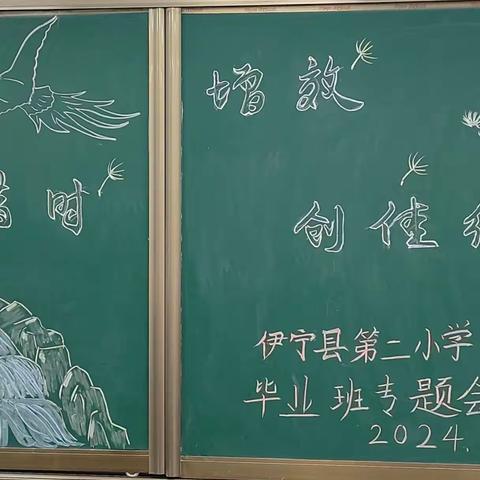 时
增效
创佳
伊宁县第二小学
毕业班专题会
2024.